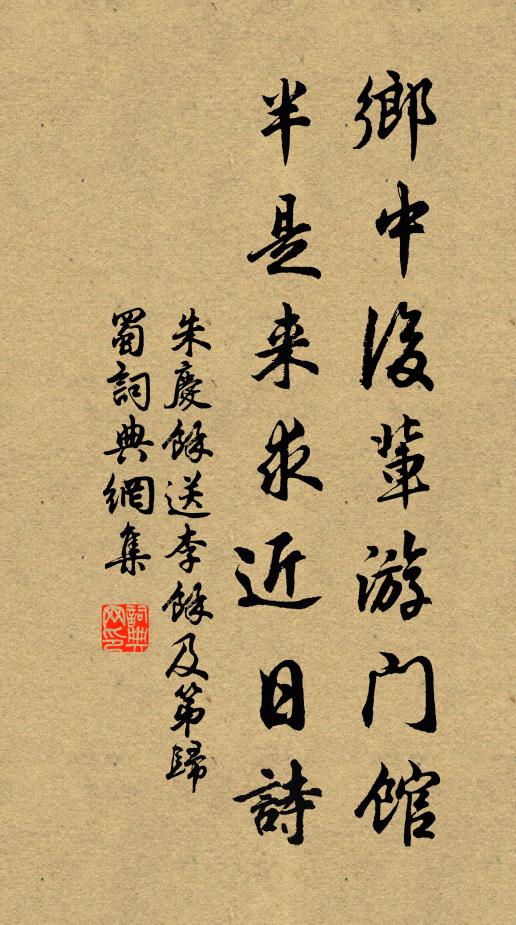 鄉中後輩游門館
半是来求近日詩
朱慶餘送李餘及第歸
蜀詞典網集
詞典網印